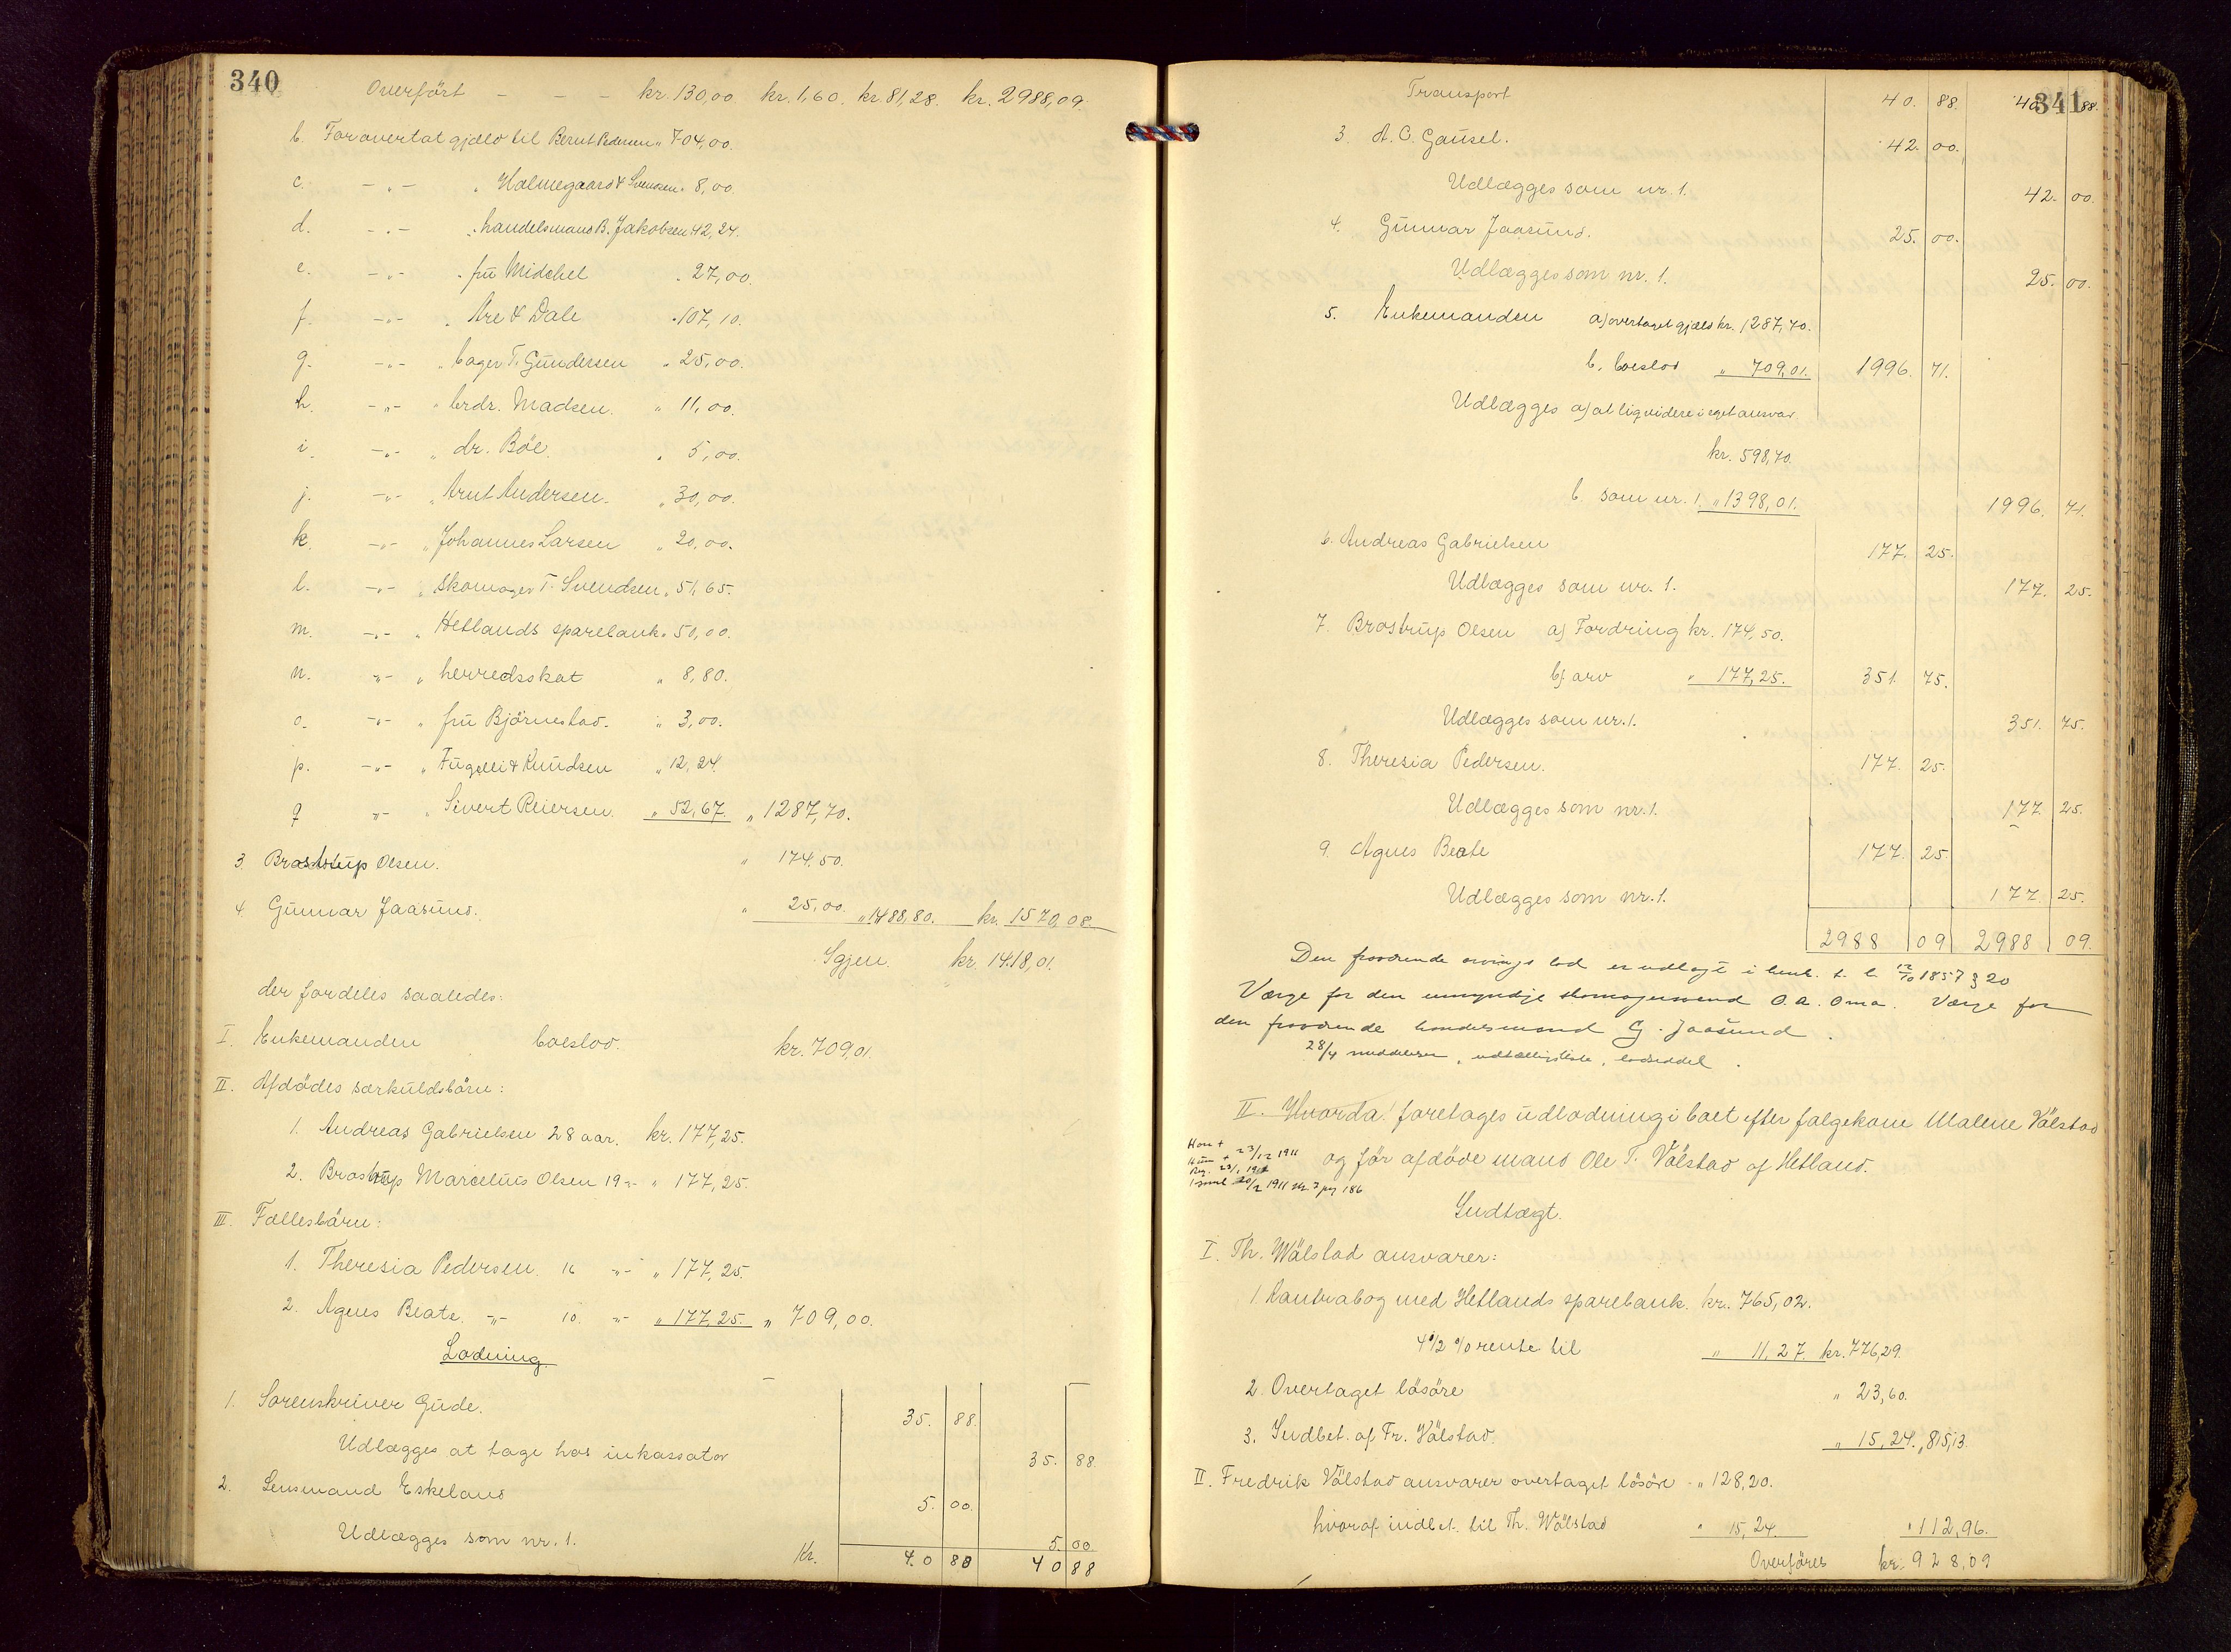 340
Overført - - - kr. 130,00. kr. 1,60. kr. 81,28. kr. 2988,09.
b. For overtat gjæld til Bernt Pedersen " 704,00.
c. -"- " Holmegaard & Svendsen " 8,00.
d. -"- " handelsmand B. Jakobsen 42,24.
e. -"- " frú Midchel " 27,00.
f. -"- " Are & Dale " 107,10.
g. -"- " bager T. Gúndersen " 25,00.
h. -"- " brdr. Madsen. " 11,00.
i. -"- " dr. Böe. " 5,00.
j. -"- " Arnt Andersen. " 30,00.
k. -"- " Johannes Larsen " 20,00.
l. -"- " skomager T. Svendsen " 51,65.
m. -"- " Hetlands sparebank " 50,00.
n. -"- " herredsskat " 8,80.
o. -"- " frú Björnestad. " 3,00.
p. -"- " Fúgelli & Knúdsen " 12,24.
q -"- " Sivert Reiersen. " 52,67. " 1287,70.
3. Brostrúp Olsen. " 174,50.
4. Gúnnar Jaasúnd. " 25,00. " 1488,80. kr. 1570,08.
Igjen. kr. 1418,01.
der fordeles saaledes:
I. Enkemanden boeslod. kr. 709,01.
II. Afdödes særkúldsbörn:
1. Andreas Gabrielsen 28 aar. kr. 177,25.
2. Brostrúp Marcelius Olsen 19 -"- " 177,25.
III. Fællesbörn:
1. Theresia Pedersen. 16 -"- " 177,25.
2. Agnes Beate. -"- 10. -"- " 177,25. " 709,00.
Lodning.
1. Sorenskriver Gúde. 35. 88.
Udlægges at tage hos inkassator 35. 88.
2. Lensmand Eskeland 5. 00.
Udlægges som nr. 1. 5. 00.
Kr. 40 88 40 88
341
Transport 40. 88. 40. 88.
3. A. C. Gaúsel. 42. 00.
Udlægges som nr. 1. 42. 00.
4. Gúnnar Jaasúnd. 25. 00.
Udlægges som nr. 1. 25. 00.
5. Enkemanden a) overtaget gjæld kr. 1287,70.
b. boeslod " 709,01. 1996. 71.
Udlægges a) at liqvidere i eget ansvar
kr. 598,70.
b. som nr. 1. " 1398,01. 1996. 71.
6. Andreas Gabrielsen 177. 25.
Udlægges som nr. 1. 177. 25.
7. Brostrúp Olsen a) Fordring kr. 174,50.
b) arv " 177,25. 351. 75.
Udlægges som nr. 1. 351. 75.
8. Theresia Pedersen. 177. 25.
Udlægges som nr. 1. 177. 25.
9. Agnes Beate 177. 25.
Udlægges som nr. 1. 177. 25.
2988 09 2988 09.
Den fraværende arvings lod er udlagt i henh. t. l. 12/10 1857 § 20
Værge for den umyndige skomagersvend O. A. Oma. Værge for
den fraværende handelsmand G. Jaasund.
28/4 meddelelser, udtællingsliste, lodseddel.
II. Hvorda foretages údlodning i boet efter følgekone Malene Völstad
Hon +
Hun + 23/12 1911
Reg. 23/1 1911
og før afdöde mand Ole T. Völstad af Hetland.
20/2 1911 nr. 7 pg 186
Indtægt.
I. Th. Wölstad ansvarer:
1. Kontrabog med Hetlands sparebank. kr. 765,02.
4 1/2 % rente til " 11,27. kr. 776,29.
2. Overtaget lösöre " 23,60.
3. Indbet. af Fr. Völstad. " 15,24. " 815,13.
II. Fredrik Völstad ansvarer overtaget lösöre - " 128,20.
hvoraf indbet. til Th. Wölstad " 15,24. " 112,96.
Overføres kr. 928,09